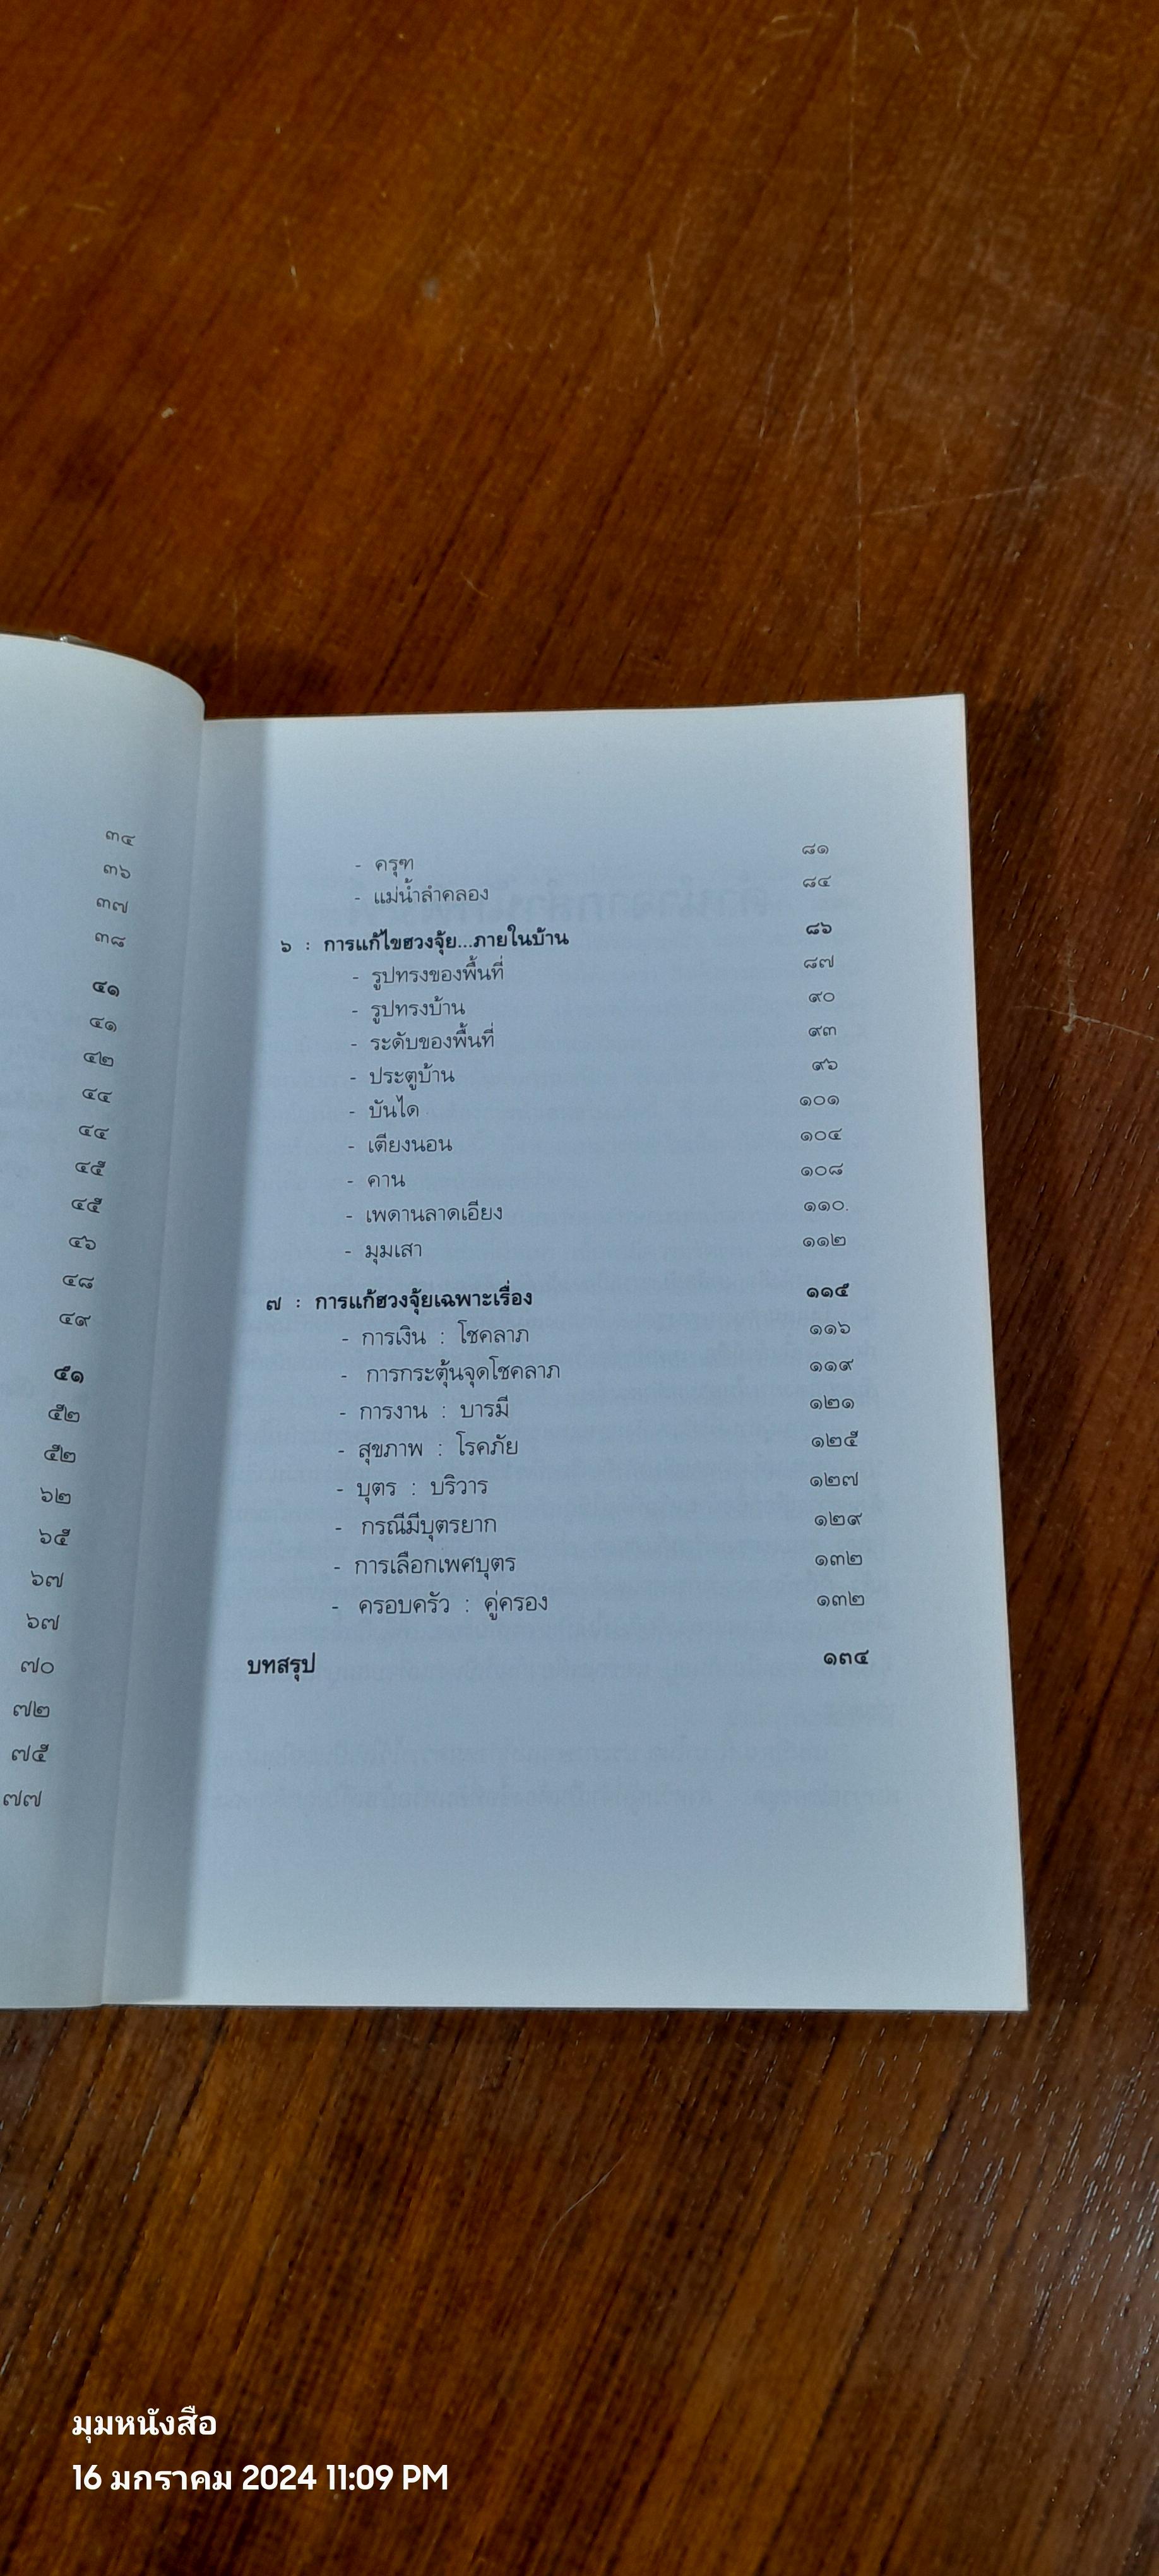 ๓๔
๓๖
๓๗
๓๘
๔๑
๔๑
๔๒
๔๔
๔๔
๔๕
๔๕
๔๖
๔๘
๔๙
๕๑
๕๒
๕๒
๖๒
๖๕
๖๗
๖๗
๗๐
๗๒
๗๕
๗๗
- ครุฑ ๘๑
- แม่น้ำลำคลอง ๘๔
๖ : การแก้ไขฮวงจุ้ย...ภายในบ้าน ๘๖
- รูปทรงของพื้นที่ ๘๗
- รูปทรงบ้าน ๙๐
- ระดับของพื้นที่ ๙๓
- ประตูบ้าน ๙๖
- บันได ๑๐๑
- เตียงนอน ๑๐๔
- คาน ๑๐๘
- เพดานลาดเอียง ๑๑๐.
- มุมเสา ๑๑๒
๗ : การแก้ฮวงจุ้ยเฉพาะเรื่อง ๑๑๕
- การเงิน : โชคลาภ ๑๑๖
- การกระตุ้นจุดโชคลาภ ๑๑๙
- การงาน : บารมี ๑๒๑
- สุขภาพ : โรคภัย ๑๒๕
- บุตร : บริวาร ๑๒๗
- กรณีมีบุตรยาก ๑๒๙
- การเลือกเพศบุตร ๑๓๒
- ครอบครัว : คู่ครอง ๑๓๒
บทสรุป ๑๓๔
มุมหนังสือ
16 มกราคม 2024 11:09 PM